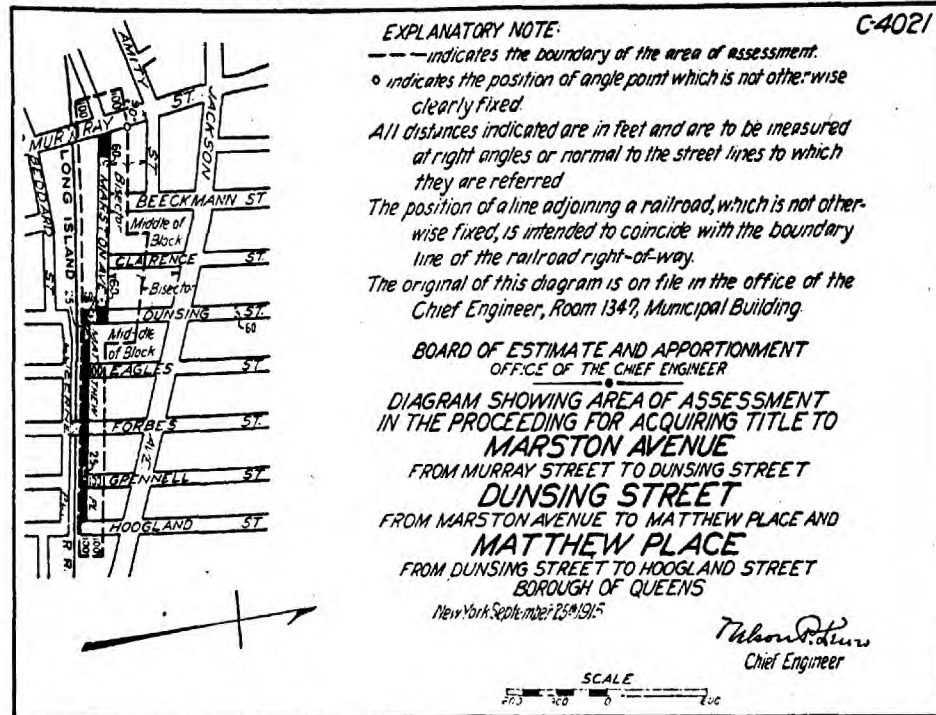 C-4021
EXPLANATORY NOTE:
indicates the boundary of the area of assessment.
indicates the position of angle point which is not otherwise
clearly fixed.
All distances indicated are in feet and are to be measured
at right angles or normal to the street lines to which
they are referred
The position of a line adjoining a railroad, which is not other-
wise fixed, is intended to coincide with the boundary
line of the railroad right-of-way.
The original of this diagram is on file in the office of the
Chief Engineer, Room 1347, Municipal Building.
BOARD OF ESTIMATE AND APPORTIONMENT
OFFICE OF THE CHIEF ENGINEER
DIAGRAM SHOWING AREA OF ASSESSMENT
IN THE PROCEEDING FOR ACQUIRING TITLE TO
MARSTON AVENUE
FROM MURRAY STREET TO DUNSING STREET
DUNSING STREET
FROM MARSTON AVENUE TO MATTHEW PLACE AND
MATTHEW PLACE
FROM DUNSING STREET TO HOOGLAND STREET
BOROUGH OF QUEENS
New York September 25th 1915
Chief Engineer
SCALE
0
AMITY
ST.
JACKSON
AVE.
MURRAY
ST.
100
100
BEDDARD
ST.
LONG ISLAND
R.R.
MARSTON AVE.
60
Bisector
BEECKMANN ST
Middle of
Block
CLARENCE ST.
60
Bisector
DUNSING ST.
60
Middle
of Block
MATTHEW
PL.
EAGLES ST.
FORBES ST.
25
GRENNELL ST
HOOGLAND ST
100
100